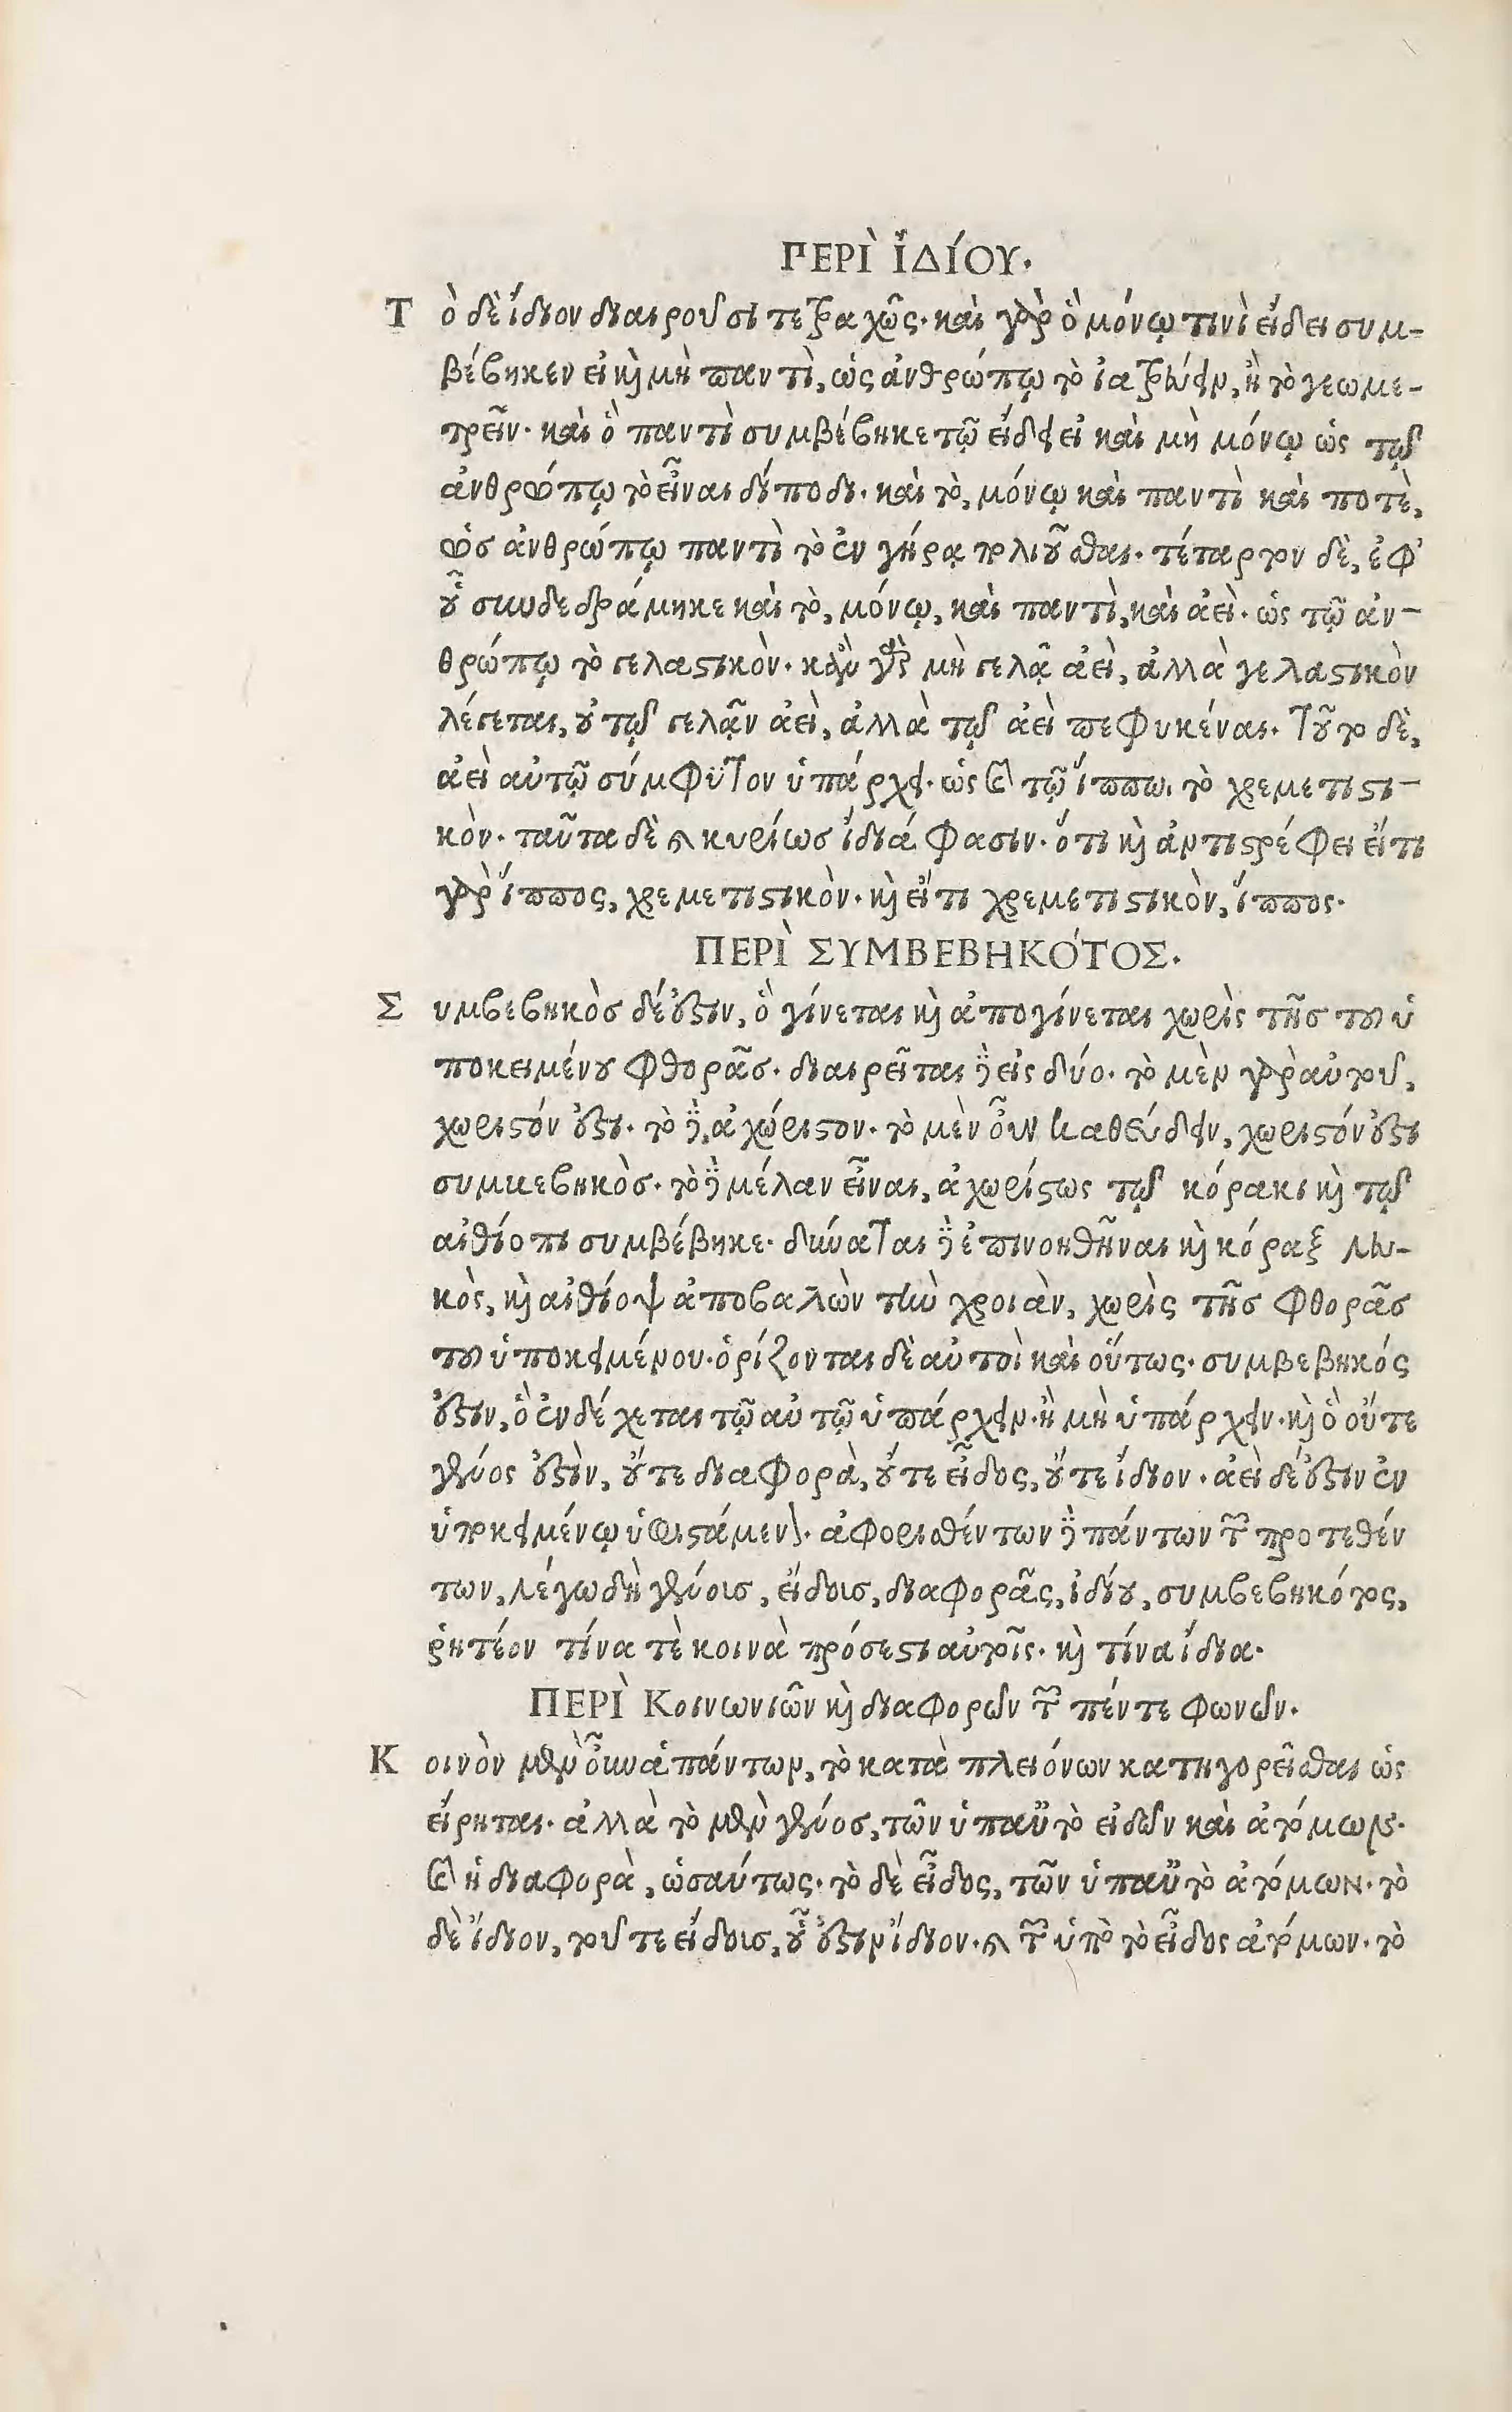 ΠΕΡῚ ἸΔΊΟΥ.
Τὸ δὲ ἴδιον διαιροῦσι τετραχῶς· καὶ γὰρ ὃ μόνῳ τινὶ εἴδει συμ-
βέβηκεν εἰ καὶ μὴ παντὶ, ὡς ἀνθρώπῳ τὸ ἰατρεύειν, ἢ τὸ γεωμε-
τρεῖν· καὶ ὃ παντὶ συμβέβηκε τῷ εἴδει εἰ καὶ μὴ μόνῳ ὡς τῷ
ἀνθρώπῳ τὸ εἶναι δίποδι· καὶ τὸ, μόνῳ καὶ παντὶ καὶ ποτὲ,
ὡς ἀνθρώπῳ παντὶ τὸ ἐν γήρᾳ πολιοῦσθαι· τέταρτον δὲ, ἐφ'
οὗ συνδεδράμηκε καὶ τὸ, μόνῳ, καὶ παντὶ, καὶ ἀεὶ· ὡς τῷ ἀν-
θρώπῳ τὸ γελαστικὸν· κἂν γὰρ μὴ γελᾷ ἀεὶ, ἀλλὰ γελαστικὸν
λέγεται, οὐ τῷ γελᾷν ἀεὶ, ἀλλὰ τῷ ἀεὶ πεφυκέναι· Τοῦτο δὲ,
ἀεὶ αὐτῷ σύμφϋτον ὑπάρχει· ὡς καὶ τῷ ἵππῳ, τὸ χρεμετιστι-
κὸν· ταῦτα δὲ καὶ κυρίως ἴδιά φασιν· ὅτι καὶ ἀντιστρέφει εἴ τι
γὰρ ἵππος, χρεμετιστικὸν· καὶ εἴ τι χρεμετιστικὸν, ἵππος·
ΠΕΡῚ ΣΥΜΒΕΒΗΚΌΤΟΣ.
Συμβεβηκὸς δέ ἐστιν, ὃ γίνεται καὶ ἀπογίνεται χωρὶς τῆς τοῦ ὑ
ποκειμένου φθορᾶς· διαιρεῖται δὲ εἰς δύο· τὸ μὲν γὰρ αὐτοῦ,
χωριστόν ἐστι· τὸ δὲ, ἀχώριστον· τὸ μὲν οὖν καθεύδειν, χωριστόν ἐστι
συμκεβηκὸς· τὸ δὲ μέλαν εἶναι, ἀχωρίστως τῷ κόρακι καὶ τῷ
αἰθίοπι συμβέβηκε· δύναται δὲ ἐπινοηθῆναι καὶ κόραξ λευ-
κὸς, καὶ αἰθίοψ ἀποβαλὼν τὴν χροιὰν, χωρὶς τῆς φθορᾶς
τοῦ ὑποκειμένου· ὁρίζονται δὲ αὐτοὶ καὶ οὕτως· συμβεβηκός
ἐστιν, ὃ ἐνδέχεται τῷ αὐτῷ ὑπάρχειν· ἢ μὴ ὑπάρχειν· καὶ ὃ οὔτε
γένος ἐστὶν, οὔτε διαφορὰ, οὔτε εἶδος, οὔτε ἴδιον· ἀεὶ δέ ἐστιν ἐν
ὑποκειμένῳ ὑφιστάμενον· ἀφορισθέντων δὲ πάντων τῶν προτεθέν
των, λέγω δὴ γένοις, εἴδοις, διαφορᾶς, ἰδίου, συμβεβηκότος,
ῥητέον τίνα τὲ κοινὰ πρόσεστι αὐτοῖς· καὶ τίνα ἴδια·
ΠΕΡῚ Κοινωνιῶν καὶ διαφορῶν τῶν πέντε φωνῶν.
Κοινὸν μὲν οὖν ἁπάντων, τὸ κατὰ πλειόνων κατηγορεῖσθαι ὡς
εἴρηται· ἀλλὰ τὸ μὲν γένος, τῶν ὑπαὐτὸ εἰδῶν καὶ ἀτόμων·
καὶ ἡ διαφορὰ, ὡσαύτως· τὸ δὲ εἶδος, τῶν ὑπαὐτὸ ἀτόμων· τὸ
δὲ ἴδιον, τοῦ τε εἴδοις, οὗ ἐστιν ἴδιον· καὶ τῶν ὑπὸ τὸ εἶδος ἀτόμων· τὸ